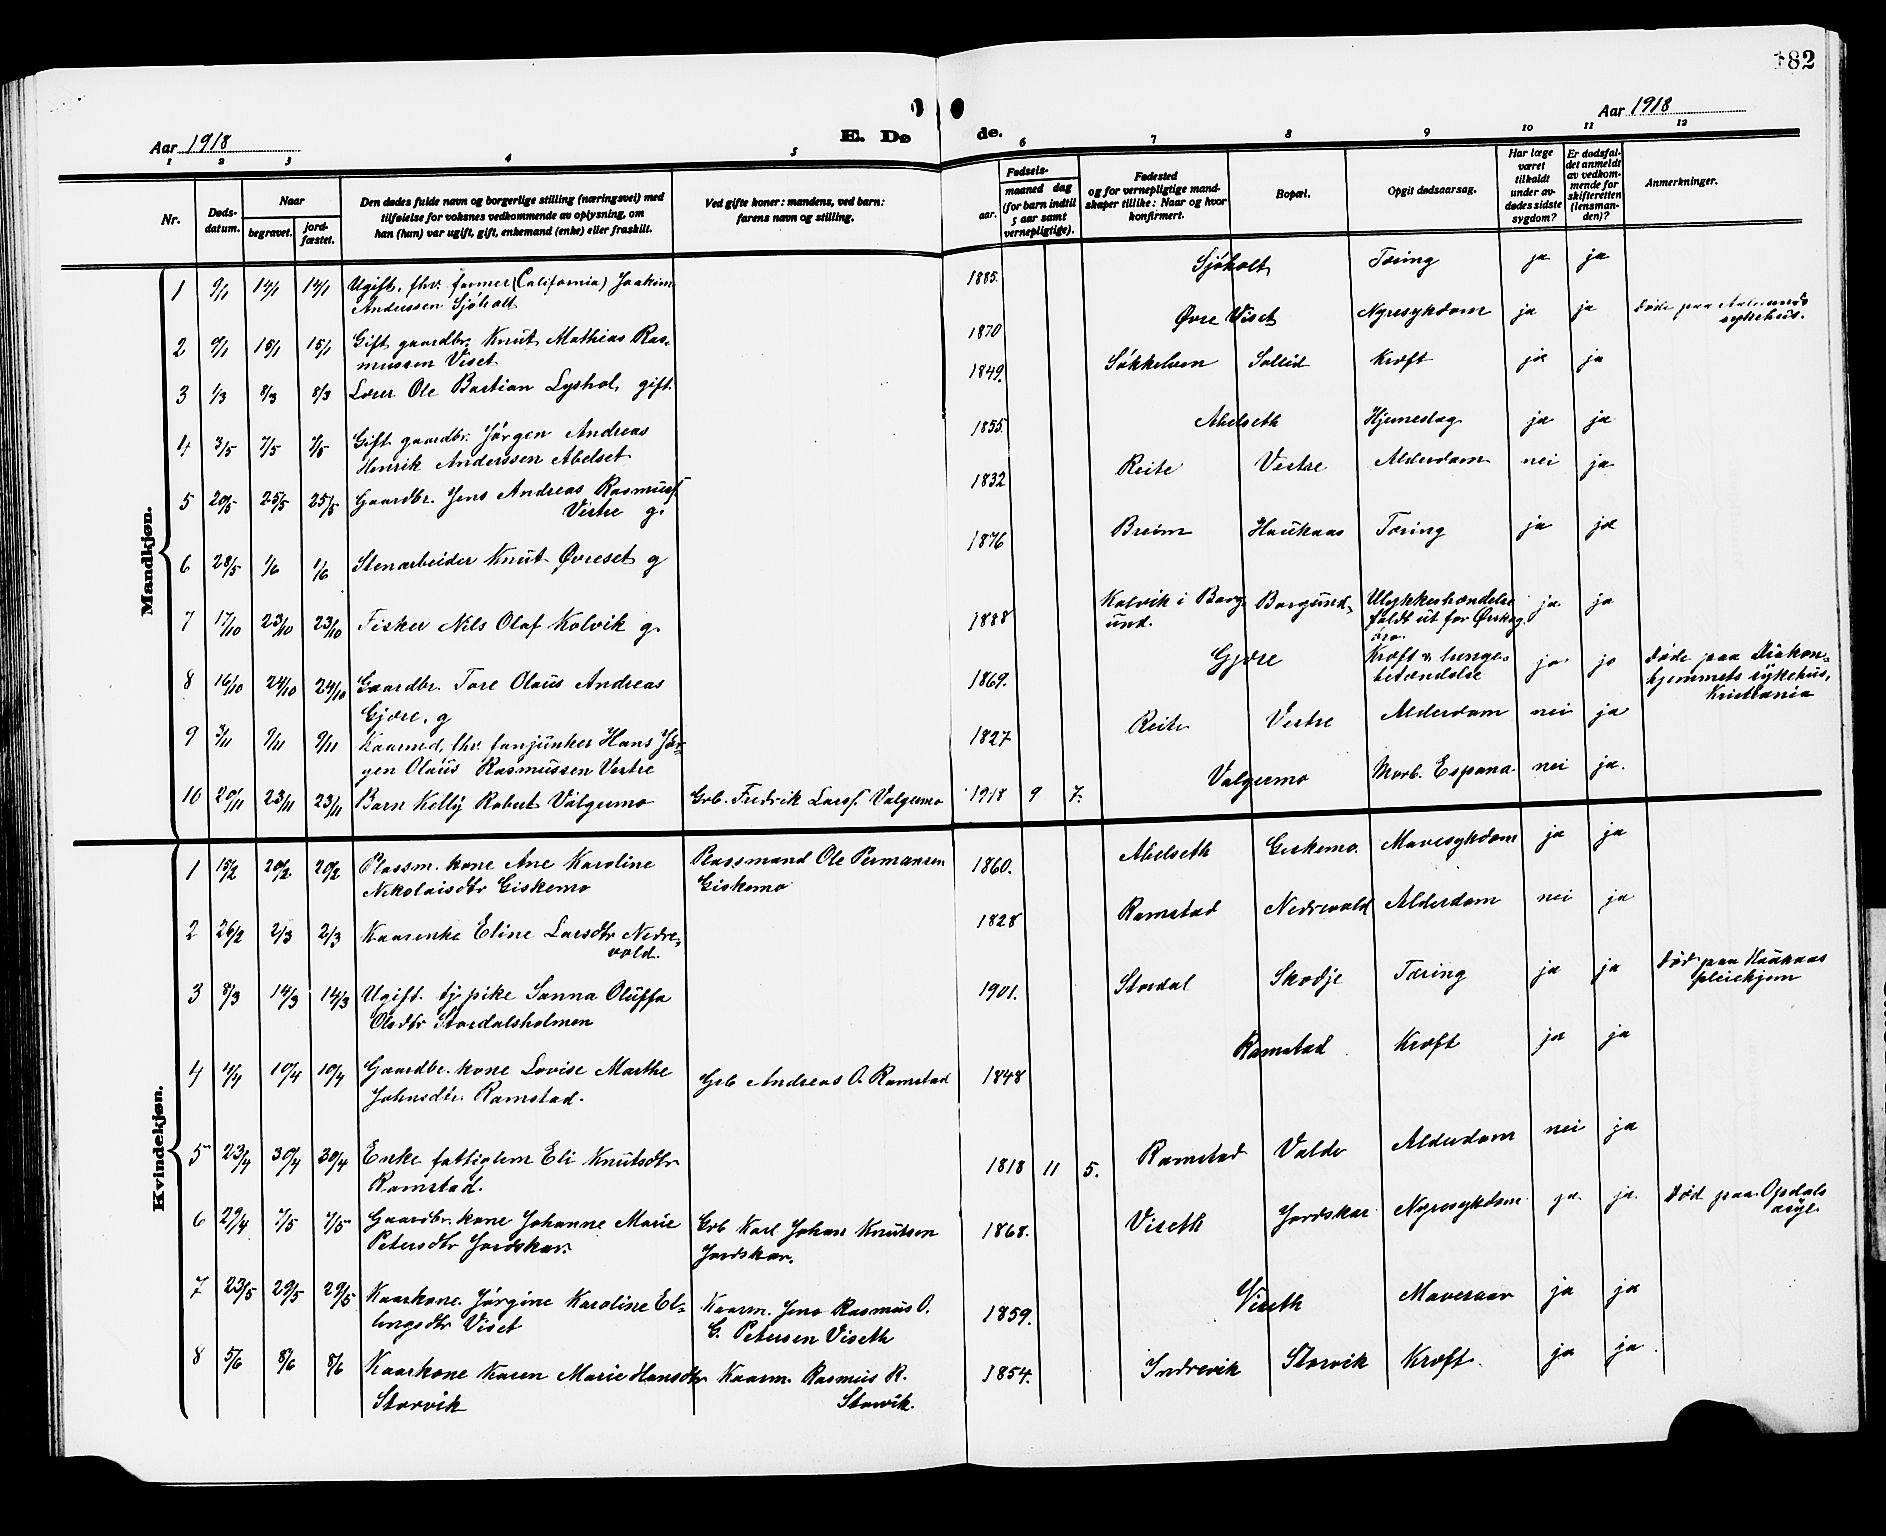 182
Aar 1918
E. Døde.
Aar 1918
1 2 3 4 5 6 7 8 9 10 11 12
Nr.
Døds-
datum.
Naar
begravet.
jord-
fæstet.
Den dødes fulde navn og borgerlige stilling (næringsvei) med
tilføielse for voksnes vedkommende av oplysning, om
han (hun) var ugift, gift, enkemand (enke) eller fraskilt.
Ved gifte koner: mandens, ved barn:
farens navn og stilling.
Fødsels-
aar.
maaned dag
(for barn indtil
5 aar samt
vernepligtige).
Fødested
og for vernepligtige mand-
skaper tillike: Naar og hvor
konfirmert.
Bopæl.
Opgit dødsaarsag.
Har læge
været
tilkaldt
under av-
dødes sidste
sygdom?
Er dødsfal-
det anmeldt
av vedkom-
mende for
skifteretten
(lensman-
den)?
Anmerkninger.
Mandkjøn.
1 9/1 14/1 14/1 Ugift, fhv. farmer (California) Joakim
Anderssen Sjøholt 1885. Sjøholt Tæring ja ja
2 9/1 15/1 15/1 Gift gaardbr. Knut Mathias Ras-
mussen Viset 1870 Øvre Viset Nyresykdom ja ja Døde paa Aalesunds
sykehus.
3 1/3 8/3 8/3 Lærer Ole Bastian Lyshol, gift. 1849. Søkkelven Sollid Kræft ja ja
4 3/5 7/5 7/5 Gift gaardbr. Jørgen Andreas
Henrik Anderssen Abelset 1855. Abelseth Hjerneslag ja ja
5 20/5 25/5 25/5 Gaardbr. Jens Andreas Rasmuss.
Vestre g. 1832 Reite Vestre Alderdom nei ja
6 28/5 1/6 1/6 Stenarbeider Knut Øvreset g 1876 Breim Haukaas Tæring ja ja
7 17/10 23/10 23/10 Fisker Nils Olaf Kolvik g. 1888 Kolvik i Borg-
und. Borgund, Ulykkeshændelse
faldt ut for Ørskog
ja ja
8 16/10 24/10 24/10 Gaardbr. Tore Olaus Andreas
Gjære, g 1869. Gjære Kræft & lunge-
betændelse ja ja Døde paa Diakon-
hjemmets sykehus,
Kristiania
9 3/11 9/11 9/11 Kaarmd, fhv. fanjunker Hans Jør-
gen Olaus Rasmussen Vestre 1827 Reite Vestre Alderdom nei ja
10 20/11 23/11 23/11 Barn Kelly Robert Valgermo Grb. Fredrik Larss. Valgermo 1918 9 7. Valgermo Morb. Espana nei ja.
Kvindekjøn.
1 15/2 20/2 20/2 Plassm. kone Ane Karoline
Nikolaisdtr Giskemo Plassmand Ole Permansen
Giskemo 1860. Abelseth Giskemo. Mavesykdom ja ja
2 26/2 2/3 2/3 Kaarenke Eline Larsdtr Nedre-
vold. 1828 Ramstad Nedrevold Alderdom nei ja
3 8/3 14/3 14/3 Ugift. tj. pike Sanna Oluffa
Olsdtr Stordalsholmen 1901. Stordal Skodje Tæring ja ja Død paa Haukaas
pleiehjem
4 4/4 10/4 10/4 Gaardbr. kone Lovise Marthe
Johnsdtr. Ramstad. Grb Andreas O. Ramstad 1848 Ramstad Kræft ja ja
5 23/4 30/4 30/4 Enke fattiglem Eli Knutsdtr
Ramstad. 1818 11 5. Ramstad Valde Alderdom nei ja
6 29/4 7/5 7/5 Gaardbr. kone Johanne Marie
Petersdtr Jordskar. Grb Karl Johan Knutsen
Jordskar. 1868. Viseth Jordskar Nyresykdom ja ja. Død paa Opdals
asyl
7 23/5 29/5 29/5 Kaarkone. Jørgine Karoline El-
lingsdtr Viset Kaarm. Jens Rasmus O.
G. Petersen Viseth 1859. Viseth Mavesaar ja ja
8 5/6 8/6 8/6 Kaarkone Karen Marie Hansdtr
Storvik Kaarm. Rasmus R.
Storvik. 1854. Indrevik Storvik Kræft. ja ja